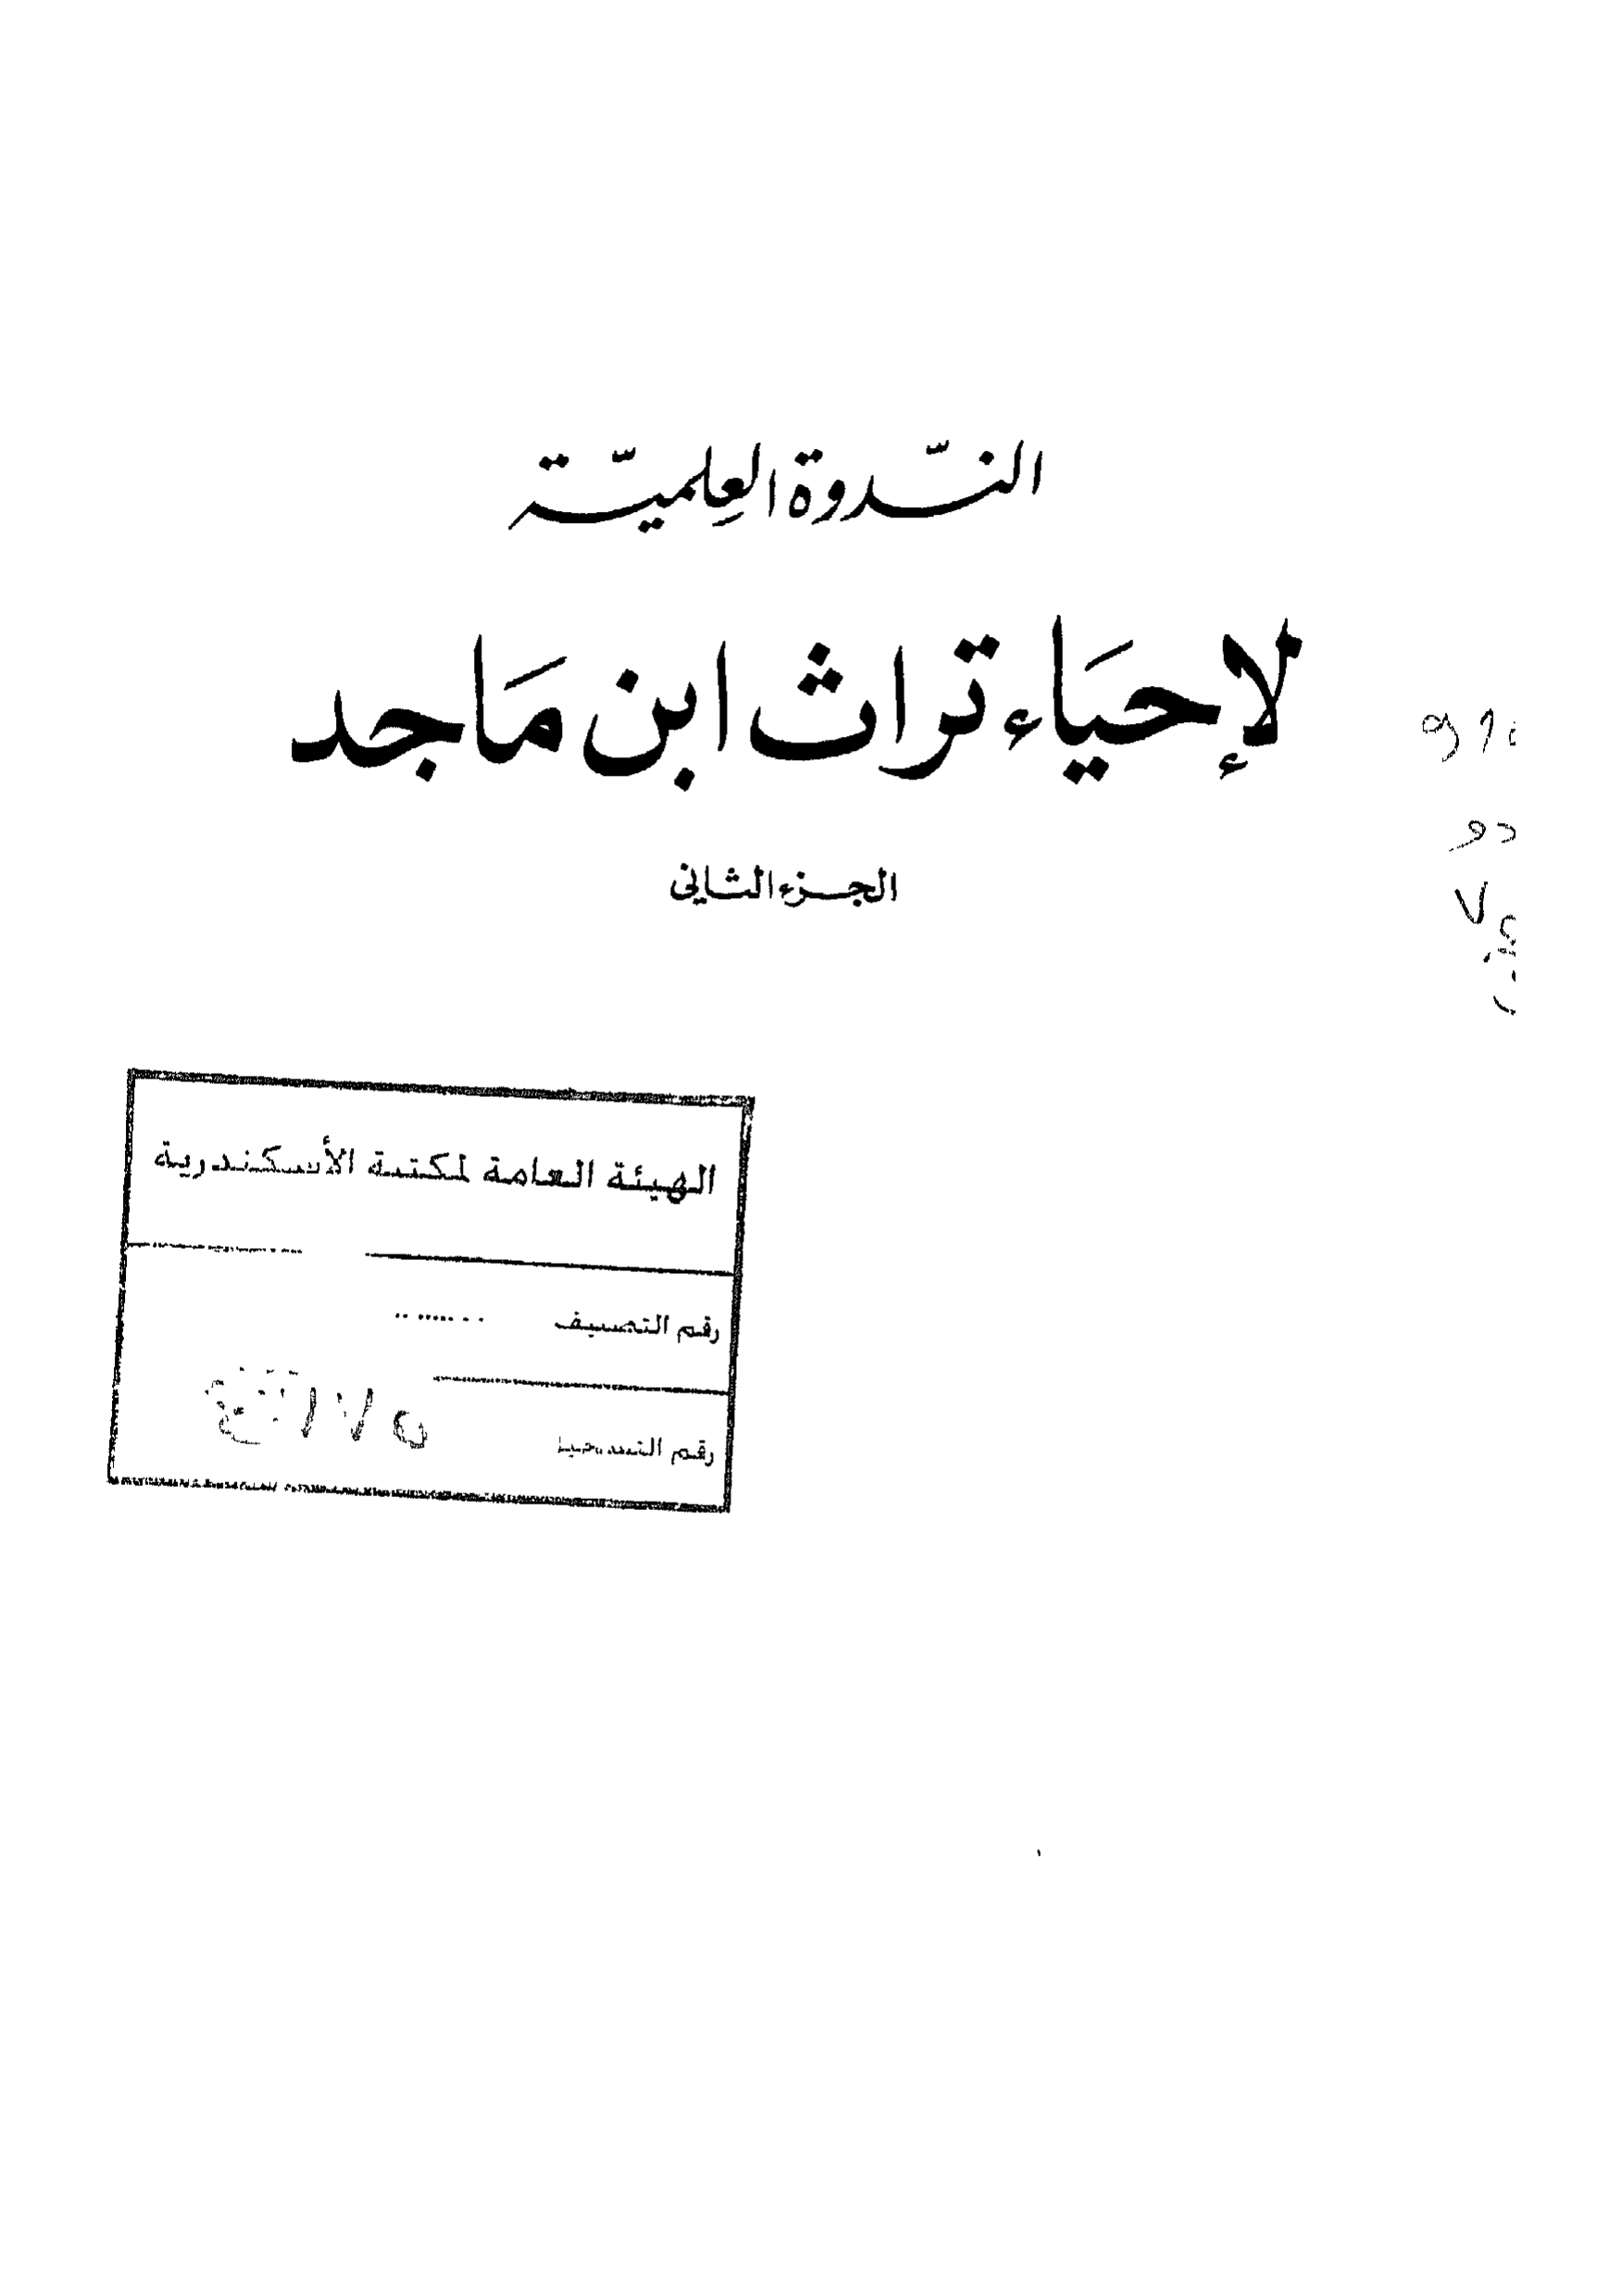 النّدوة العِلميّة
لإحيَاء تراث ابن مَاجد
الجزء الثانى
الهيئة العامة لمكتبة الأسكندرية
رقم التصنيف ........
رقم التسجيل